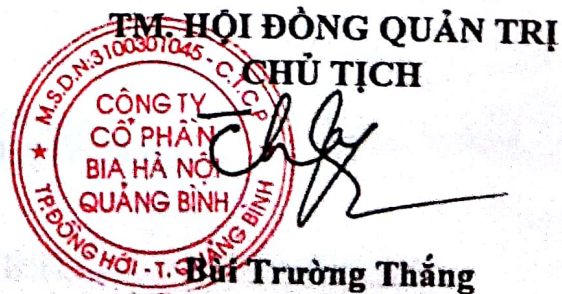 TM. HỘI ĐỒNG QUẢN TRỊ
CHỦ TỊCH
M.S.D.N:3100301045 - C.T.C.P
CÔNG TY
CỔ PHẦN
BIA HÀ NỘI
QUẢNG BÌNH
TP.ĐỒNG HỚI - T. QUẢNG BÌNH
Bùi Trường Thắng